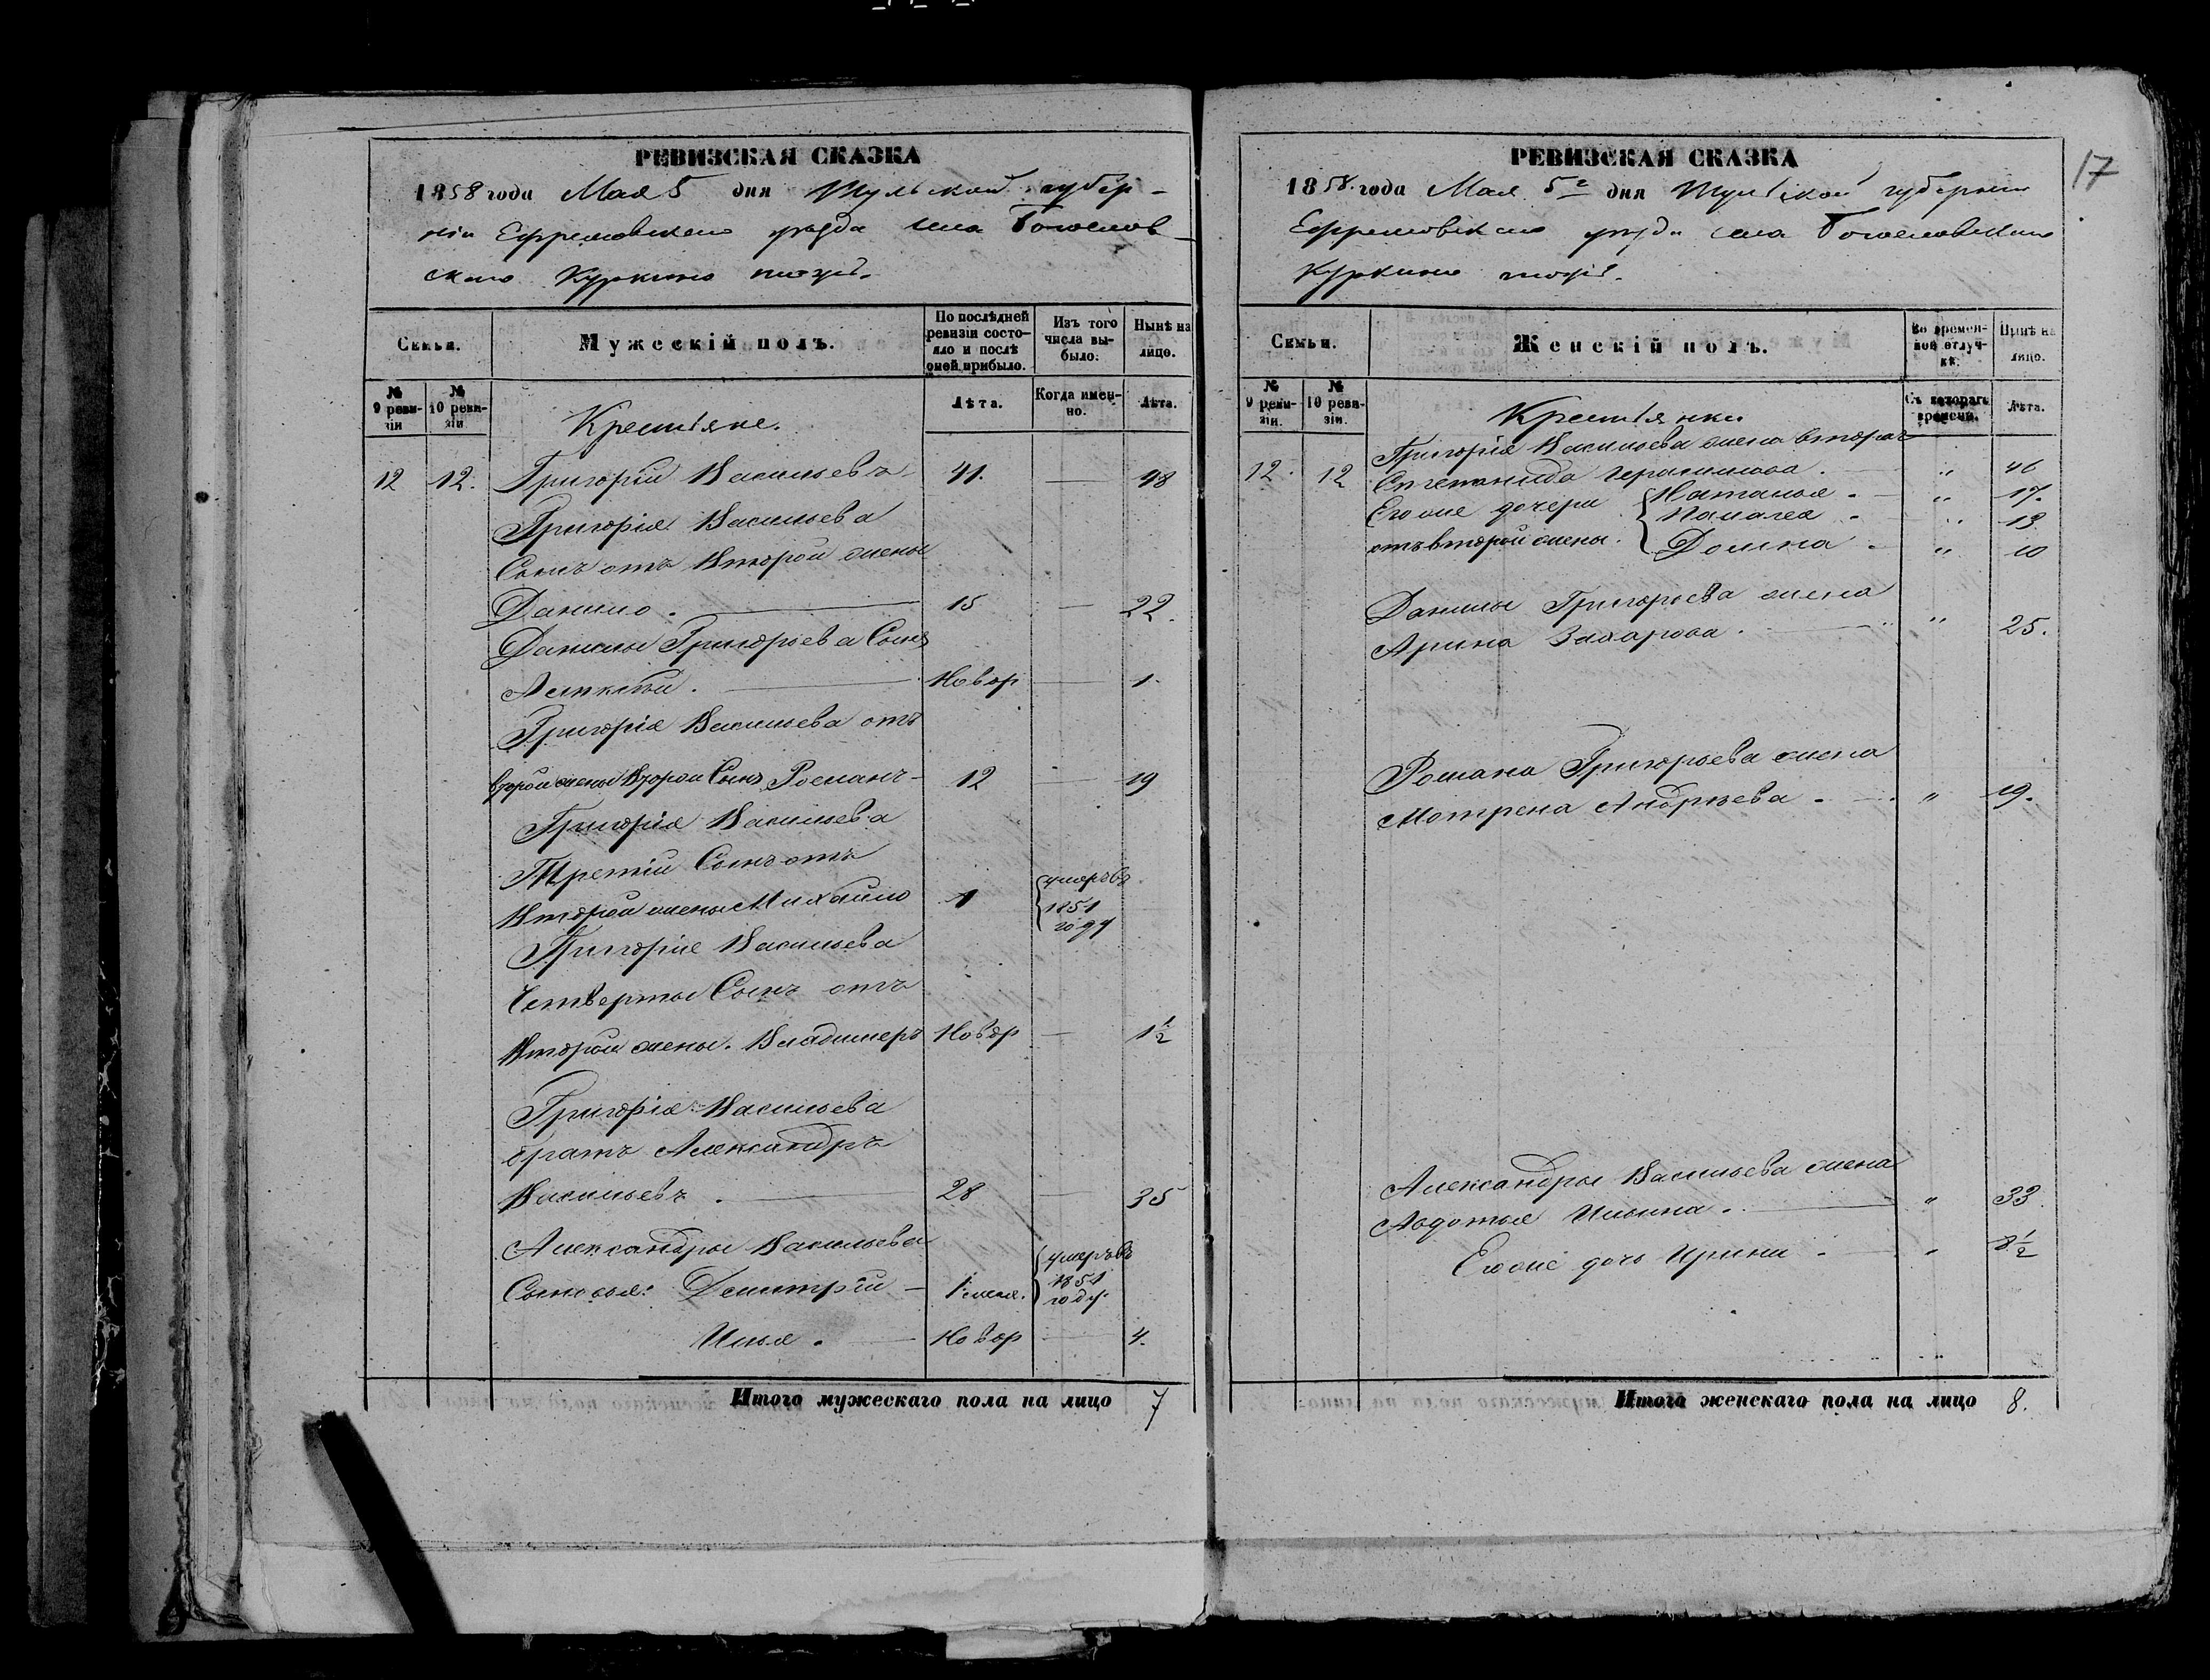 РЕВИЗСКАЯ СКАЗКА
1858 года Мая 5 дня Тульской губер-
ніи Ефремовскаго уѣзда села Богослов-
скаго Куркино тожъ.
Семьи.
Мужескій полъ.
По послѣдней ревизіи состояло и послѣ оной прибыло.
Изъ того числа выбыло.
Нынѣ на лицо.
№ 9 ревизіи
№ 10 ревизіи
Лѣта.
Когда именно.
Лѣта.
Крестьяне.
12 12. Григорій Васильевъ 41. — 48
Григорія Васильева
Сынъ отъ Второй жены
Данило. — 15 — 22.
Данилы Григорьева Сынъ
Алексѣй. — Новор — 1
Григорія Васильева отъ
второй жены Второй Сынъ Романъ - 12 — 19
Григорія Васильева
Третій Сынъ отъ
Второй жены Михайло 1 умеръ въ 1851 году
Григорія Васильева
Четвертый Сынъ отъ
Второй жены. Владимеръ Новор — 1 1/2
Григорія Васильева
братъ Александръ
Васильевъ. — 28 — 35
Александры Васильева
Сыновья: Дмитрій - 1 умеръ въ 1851 году
Илья. — Новор — 4.
Итого мужескаго пола на лицо 7
РЕВИЗСКАЯ СКАЗКА
17
1858. года Мая 5го дня Тульской губерніи
Ефремовскаго уѣзда села Богословскаго
Куркино тожъ.
Семьи.
Женскій полъ.
Во временной отлучкѣ.
Нынѣ на лицо.
№ 9 ревизіи.
№ 10 ревизіи.
Съ котораго времени.
Лѣта.
Крестьянки
Григорія Васильева жена вторая
12. 12 Степанида Герасимова. " 46
Его же дочери { Наталья. " 17.
Палагея. " 13.
отъ второй жены. { Домна. " 10
Данилы Григорьева жена
Арина Захарова. " 25.
Романа Григорьева жена
Мотрена Андреева. " 19.
Александры Васильева жена
Авдотья Ильина. " 33
Его же дочь Ирина. "
Итого женскаго пола на лицо 8.